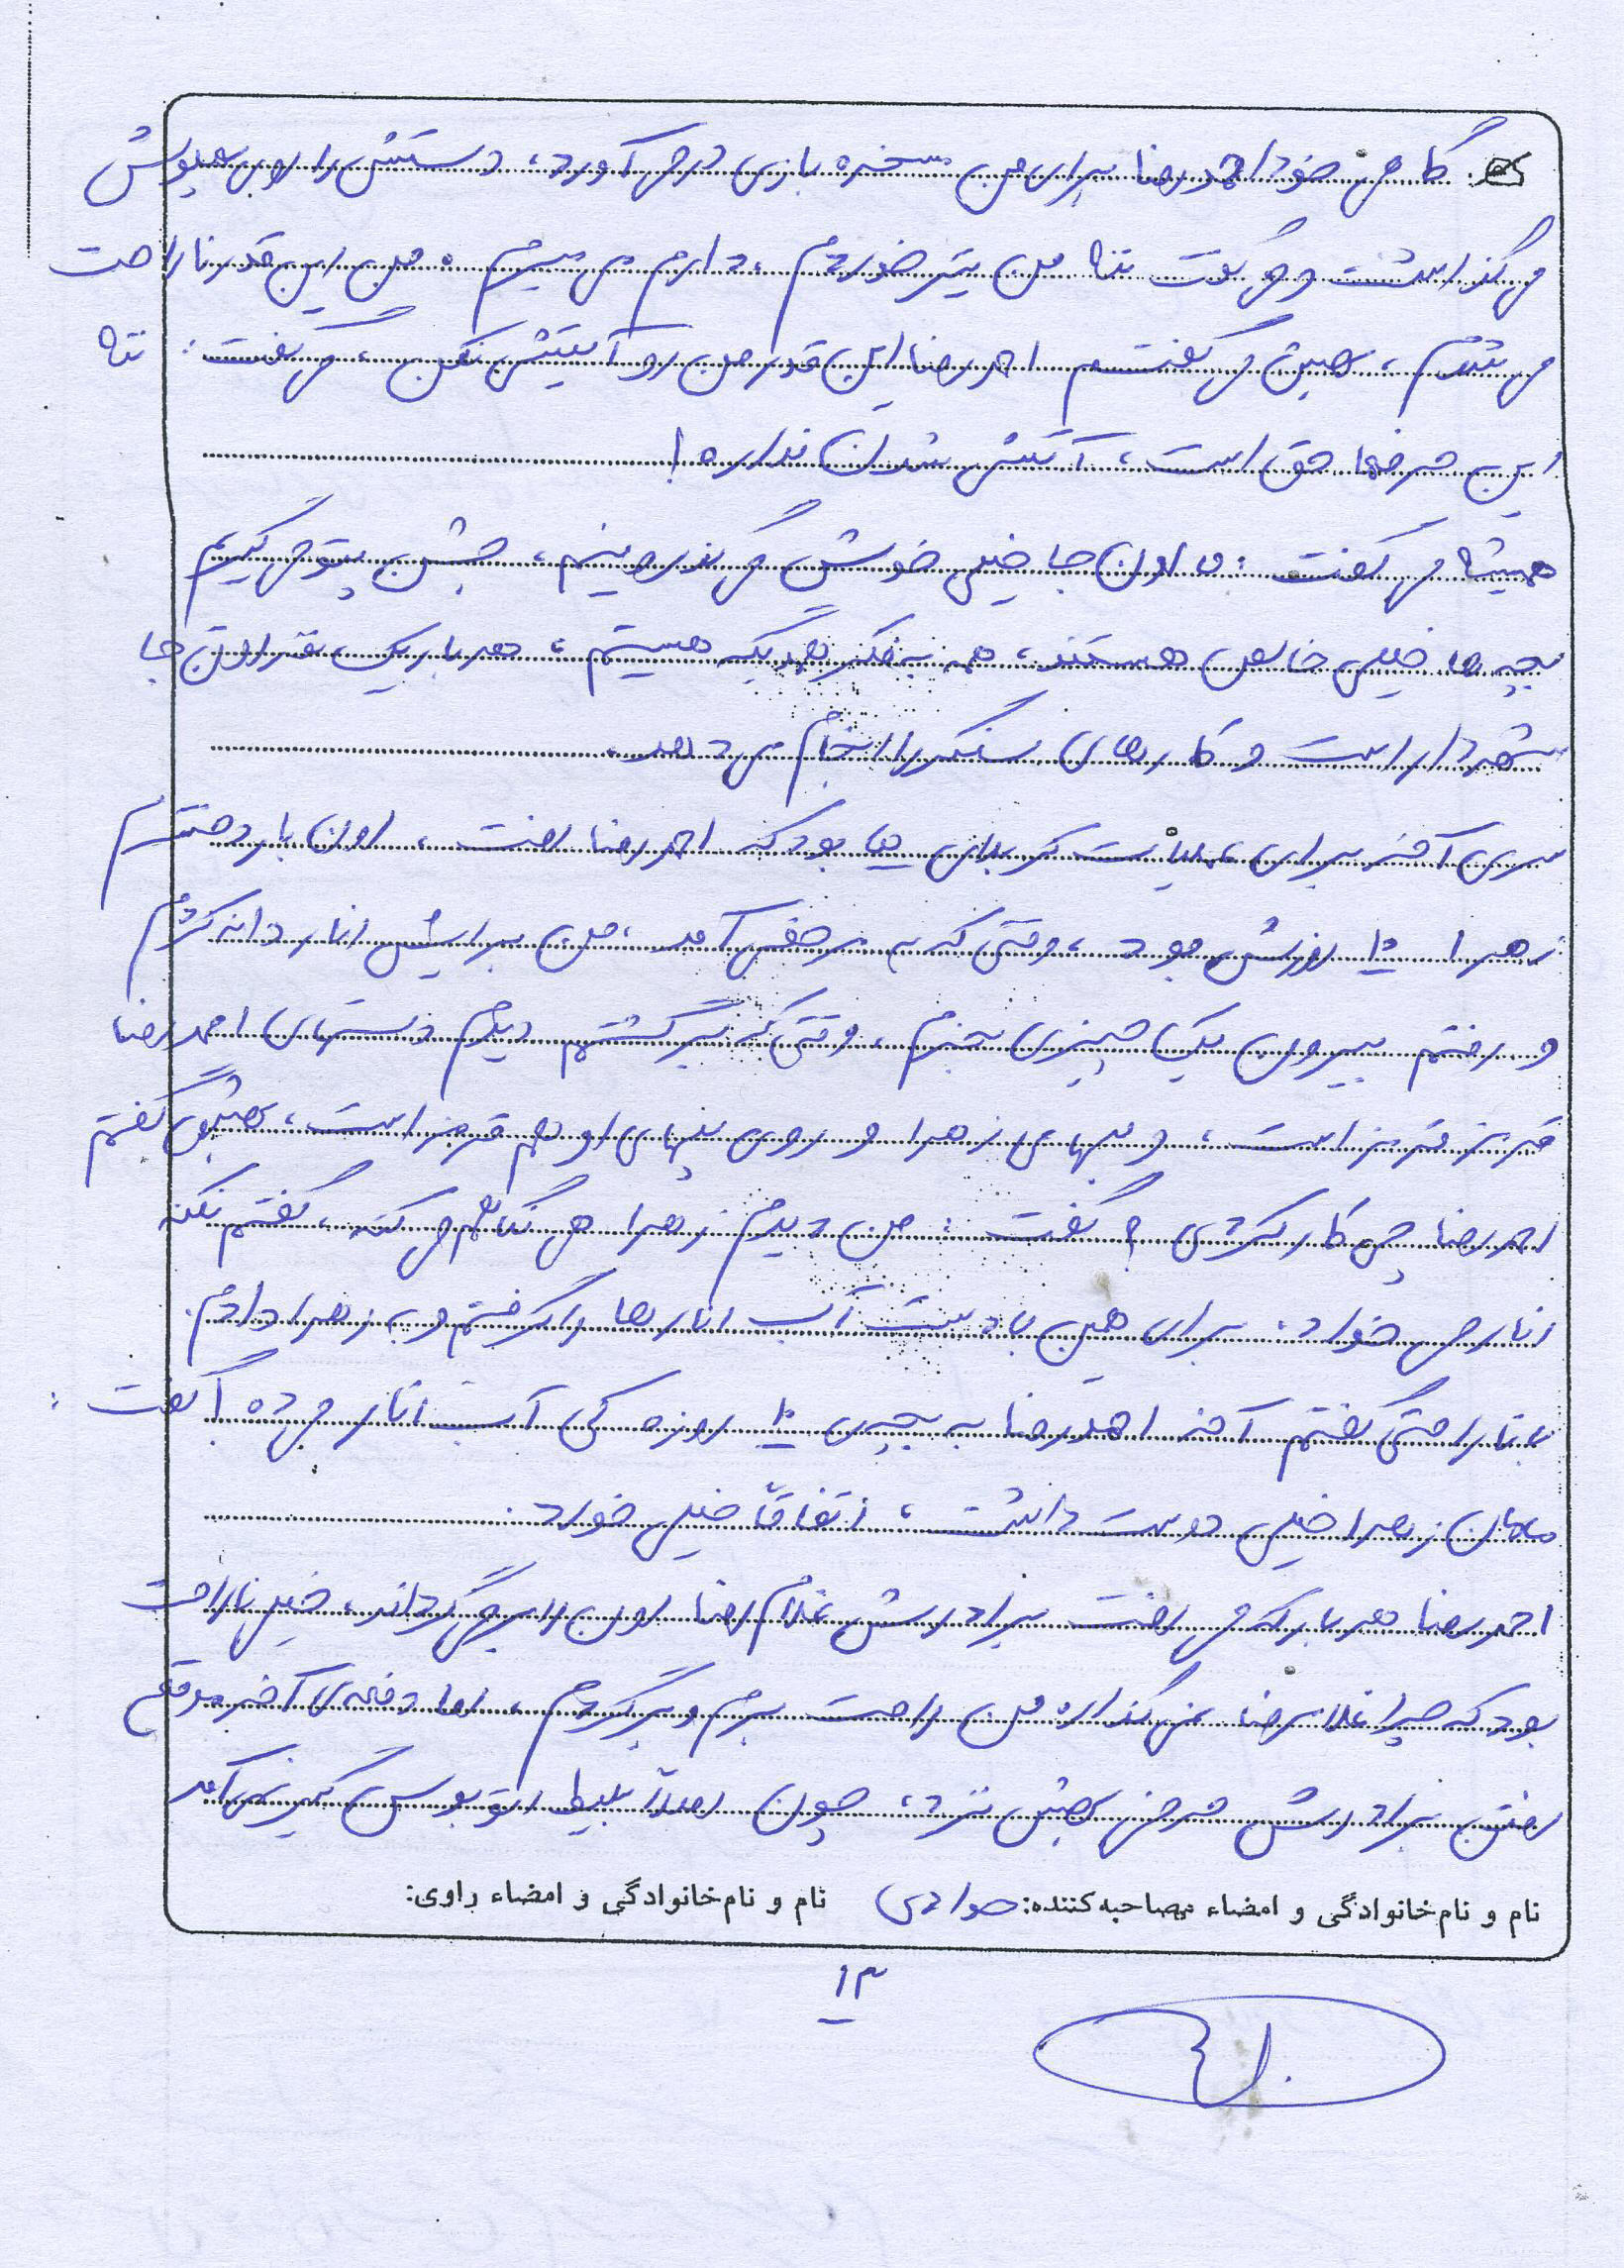 گاهی خود احمدرضا برای من مسخره بازی در می آورد، دستش را روی پهلوش
می گذاشت و می گفت ننه من تیر خوردم، دارم می میرم. من این قدر ناراحت
می شدم، بهش می گفتم احمدرضا این قدر من رو آتیش نکن، می گفت: ننه
این حرفها حق است، آتش شدن نداره!
همیشه می گفت: ما اون جا خیلی خوش می گذرونیم، جشن پتو می گیریم
بچه ها خیلی خالص هستند، همه به فکر همدیگه هستیم، هر بار یک نفر اون جا
شهردار است و کارهای سنگر را انجام می دهد.
سری آخر برای عملیات کربلای ۵ بود که احمدرضا رفت، اون بار دخترم
زهرا ۱۰ روزش بود، وقتی که به مرخصی آمد، من برایش انار دانه کردم
و رفتم بیرون یک چیزی بخرم، وقتی که برگشتم دیدم دستهای احمدرضا
قرمز قرمز است، و لبهای زهرا و روی لپهای او هم قرمز است، بهش گفتم
احمدرضا چی کار کردی؟ گفت: من دیدم زهرا هی نگاهم می کنه، گفتم نکنه
انار می خواد. برای همین با دست آب انارها را گرفتم و به زهرا دادم.
با ناراحتی گفتم آخه احمدرضا به بچه ی ۱۰ روزه کی آب انار می ده! گفت:
مامان زهرا خیلی دوست داشت، اتفاقاً خیلی خورد.
احمدرضا هر بار که می رفت برادرش غلام رضا اون را بر می گرداند، خیلی ناراحت
بود که چرا غلامرضا نمی گذاره من راحت برم و برگردم، اما دفعه ی آخر موقع
رفتن برادرش حرفی بهش نزد، چون اصلاً بلیط اتوبوس گیر نمی آمد
نام و نام خانوادگی و امضاء مصاحبه کننده: جوادی نام و نام خانوادگی و امضاء راوی:
۱۳